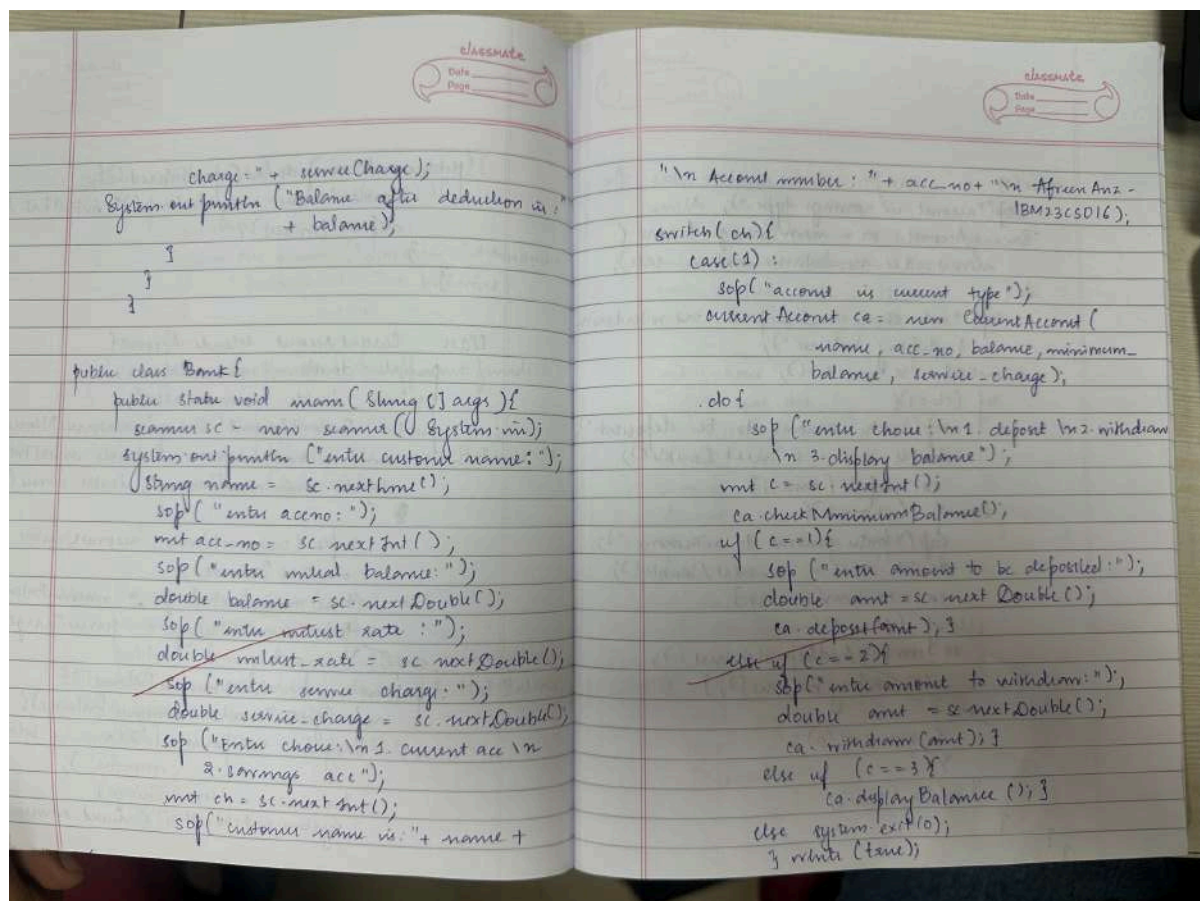 classmate
Date
Page
charge=" + serviceCharge);
System.out.println ("Balance after deduction is:"
+ balance);
}
}
}
public class Bank{
public static void main( String [] args ){
scanner sc = new scanner( System.in);
system.out.println ("enter customer name:");
String name = sc.nextLine();
sop( "enter accno: ");
int acc_no = sc.nextInt();
sop( "enter initial balance: ");
double balance = sc.nextDouble();
sop( "enter interest rate : ");
double interest_rate = sc.nextDouble();
sop ("enter service charge: ");
double service_charge = sc.nextDouble();
sop ("Enter choice:\n 1. current acc \n
2. savings acc");
int ch = sc.nextInt();
sop("customer name is: "+ name +
classmate
Date
Page
"\n Account number : " + acc_no + "\n Afreen Anz -
1BM23CS016);
switch( ch){
case(1) :
sop( "account is current type");
current Account ca = new CurrentAccount (
name, acc_no, balance, minimum_
balance, service_charge);
do {
sop ("enter choice: \n 1. deposit \n 2. withdraw
\n 3. display balance");
int c = sc.nextInt();
ca.checkMinimumBalance();
if (c==1){
sop ("enter amount to be deposited:");
double amt = sc.next Double();
ca.deposit(amt); }
else if (c==2){
sop("enter amount to withdraw: ");
double amt = sc.nextDouble();
ca.withdraw(amt); }
else if (c==3){
ca.displayBalance (); }
else system.exit(0);
} while (true);